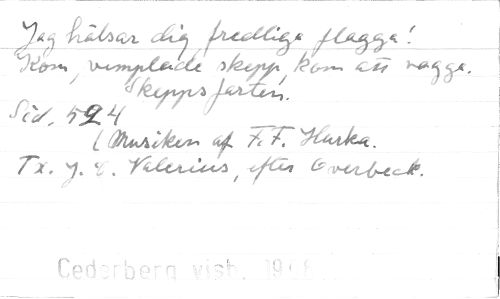 Jag hälsar dig, fredliga flagga!
Kom, vimplade skepp, kom att vagga.
Skeppsfarten.
Sid. 524
(Musiken af F. F. Hurka.
Tx. J. D. Valerius, efter Overbeck.
Cederberg vish.